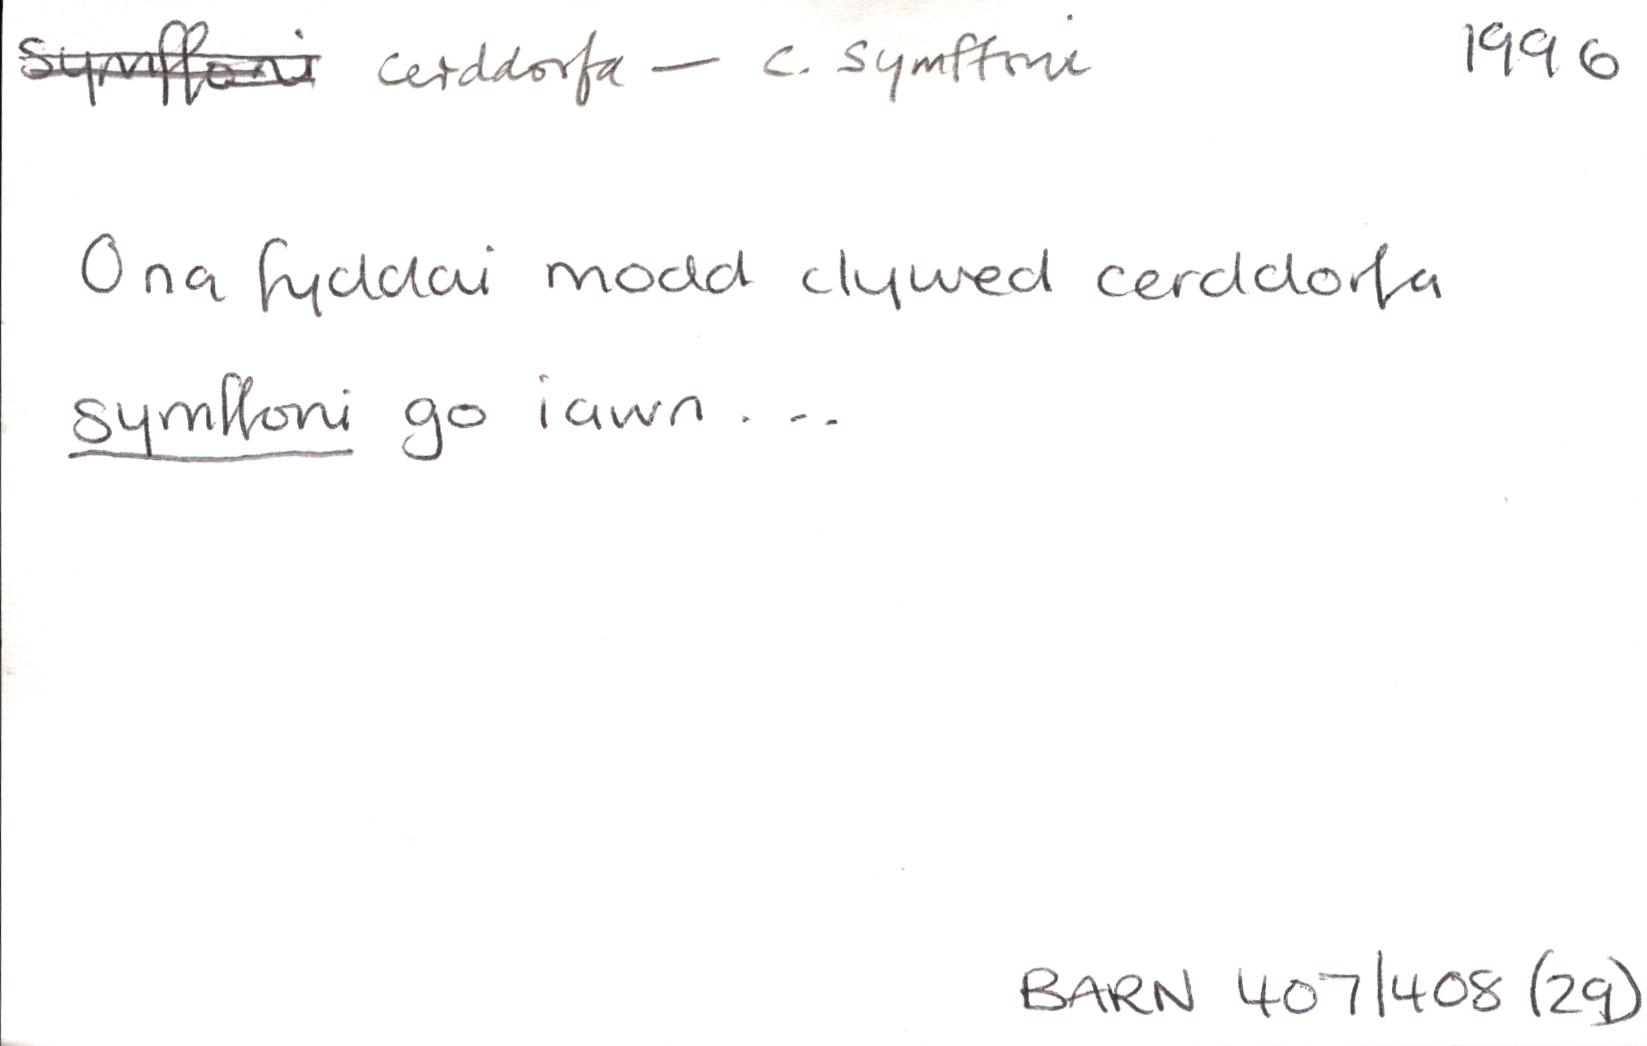 symffoni cerddorfa — c. symffoni 1996
O na fyddai modd clywed cerddorfa
symffoni go iawn . . .
BARN 407/408 (29)